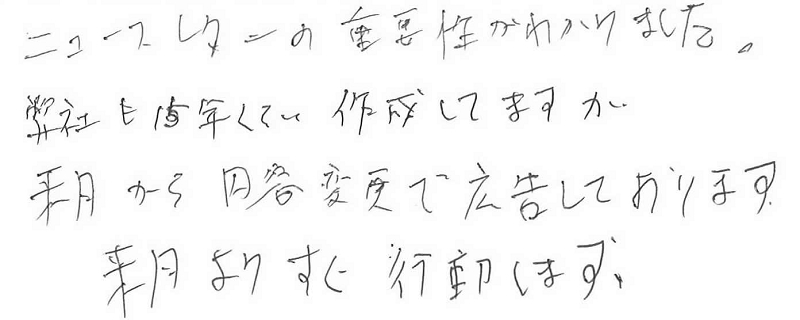 ニュースレターの重要性がわかりました。
弊社も毎年くらい作成してますが
来月から内容変更で広告しております
来月よりすぐ行動します、